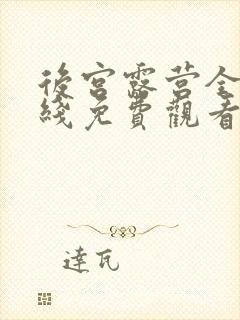 後宮露营全
綫免費觀看
達瓦